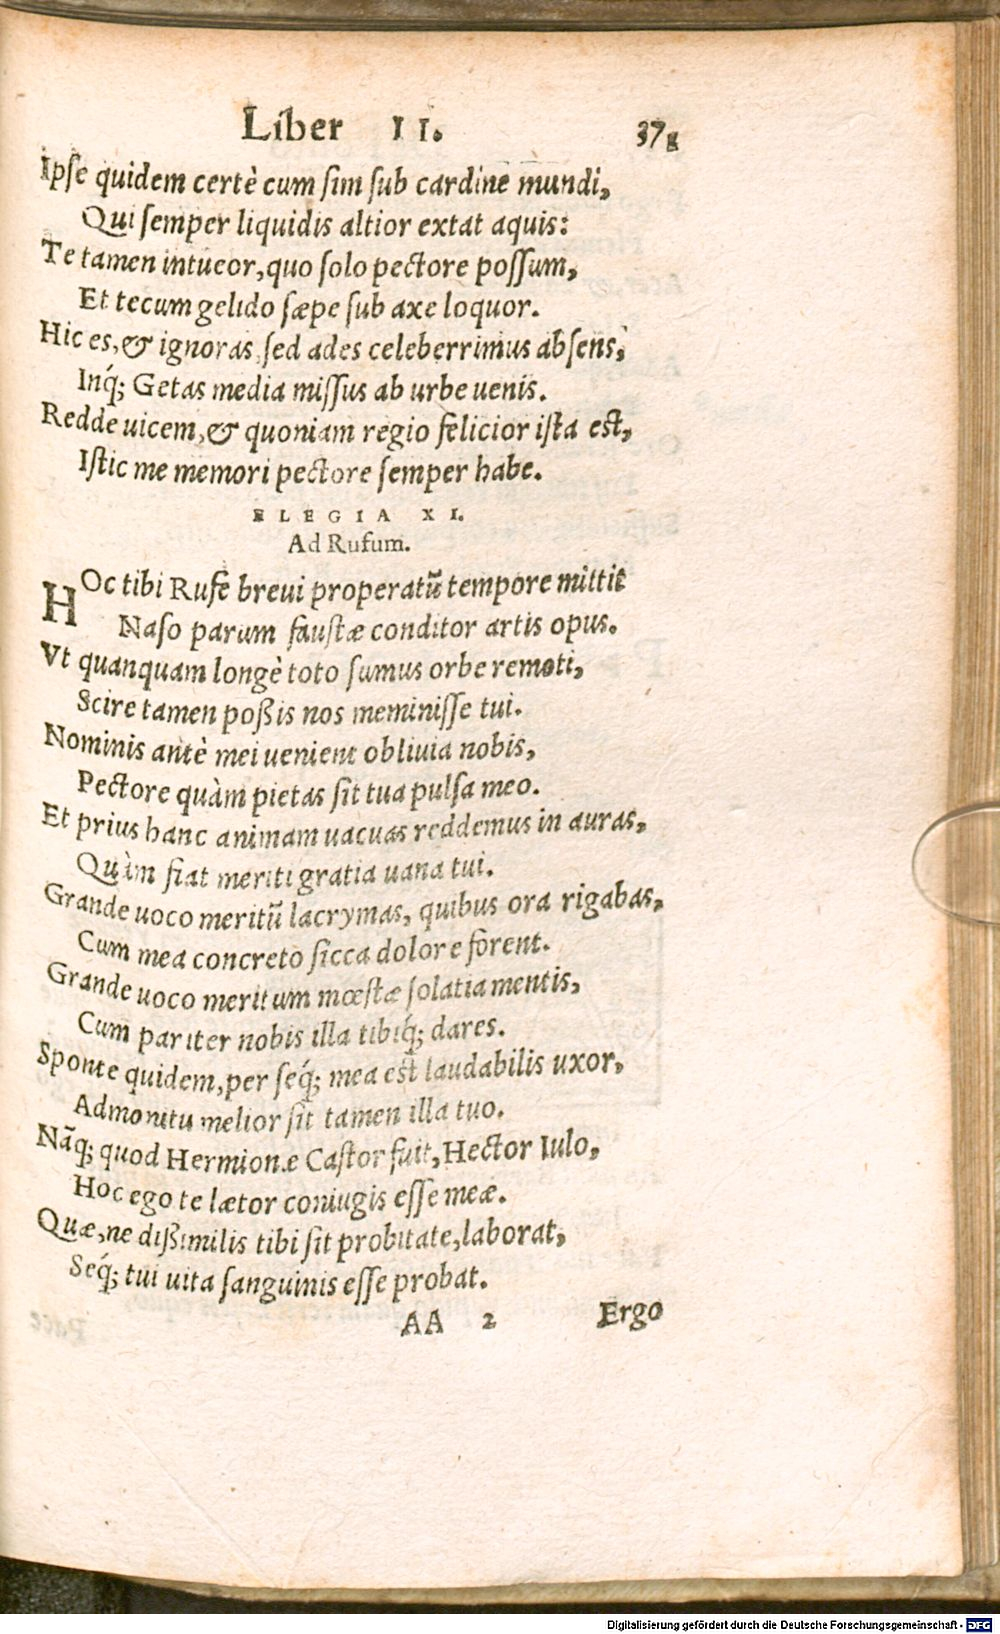 Liber II. 371
Ipse quidem certè cum sim sub cardine mundi,
Qui semper liquidis altior extat aquis:
Te tamen intueor, quo solo pectore possum,
Et tecum gelido sæpe sub axe loquor.
Hic es, & ignoras, sed ades celeberrimus absens,
Inq́; Getas media missus ab urbe uenis.
Redde uicem, & quoniam regio felicior ista est,
Istic me memori pectore semper habe.
ELEGIA XI.
Ad Rufum.
HOc tibi Rufe breui properatũ tempore mittit
Naso parum faustæ conditor artis opus.
Vt quanquam longè toto sumus orbe remoti,
Scire tamen poßis nos meminisse tui.
Nominis antè mei uenient obliuia nobis,
Pectore quàm pietas sit tua pulsa meo.
Et prius hanc animam uacuas reddemus in auras,
Quàm fiat meriti gratia uana tui.
Grande uoco meritũ lacrymas, quibus ora rigabas,
Cum mea concreto sicca dolore forent.
Grande uoco meritum mœstæ solatia mentis,
Cum pariter nobis illa tibiq́; dares.
Sponte quidem, per seq́; mea est laudabilis uxor,
Admonitu melior sit tamen illa tuo.
Nãq; quod Hermionæ Castor fuit, Hector Iulo,
Hoc ego te lætor coniugis esse meæ.
Quæ, ne dißimilis tibi sit probitate, laborat,
Seq́; tui uita sanguinis esse probat.
AA 2 Ergo
Digitalisierung gefördert durch die Deutsche Forschungsgemeinschaft - DFG